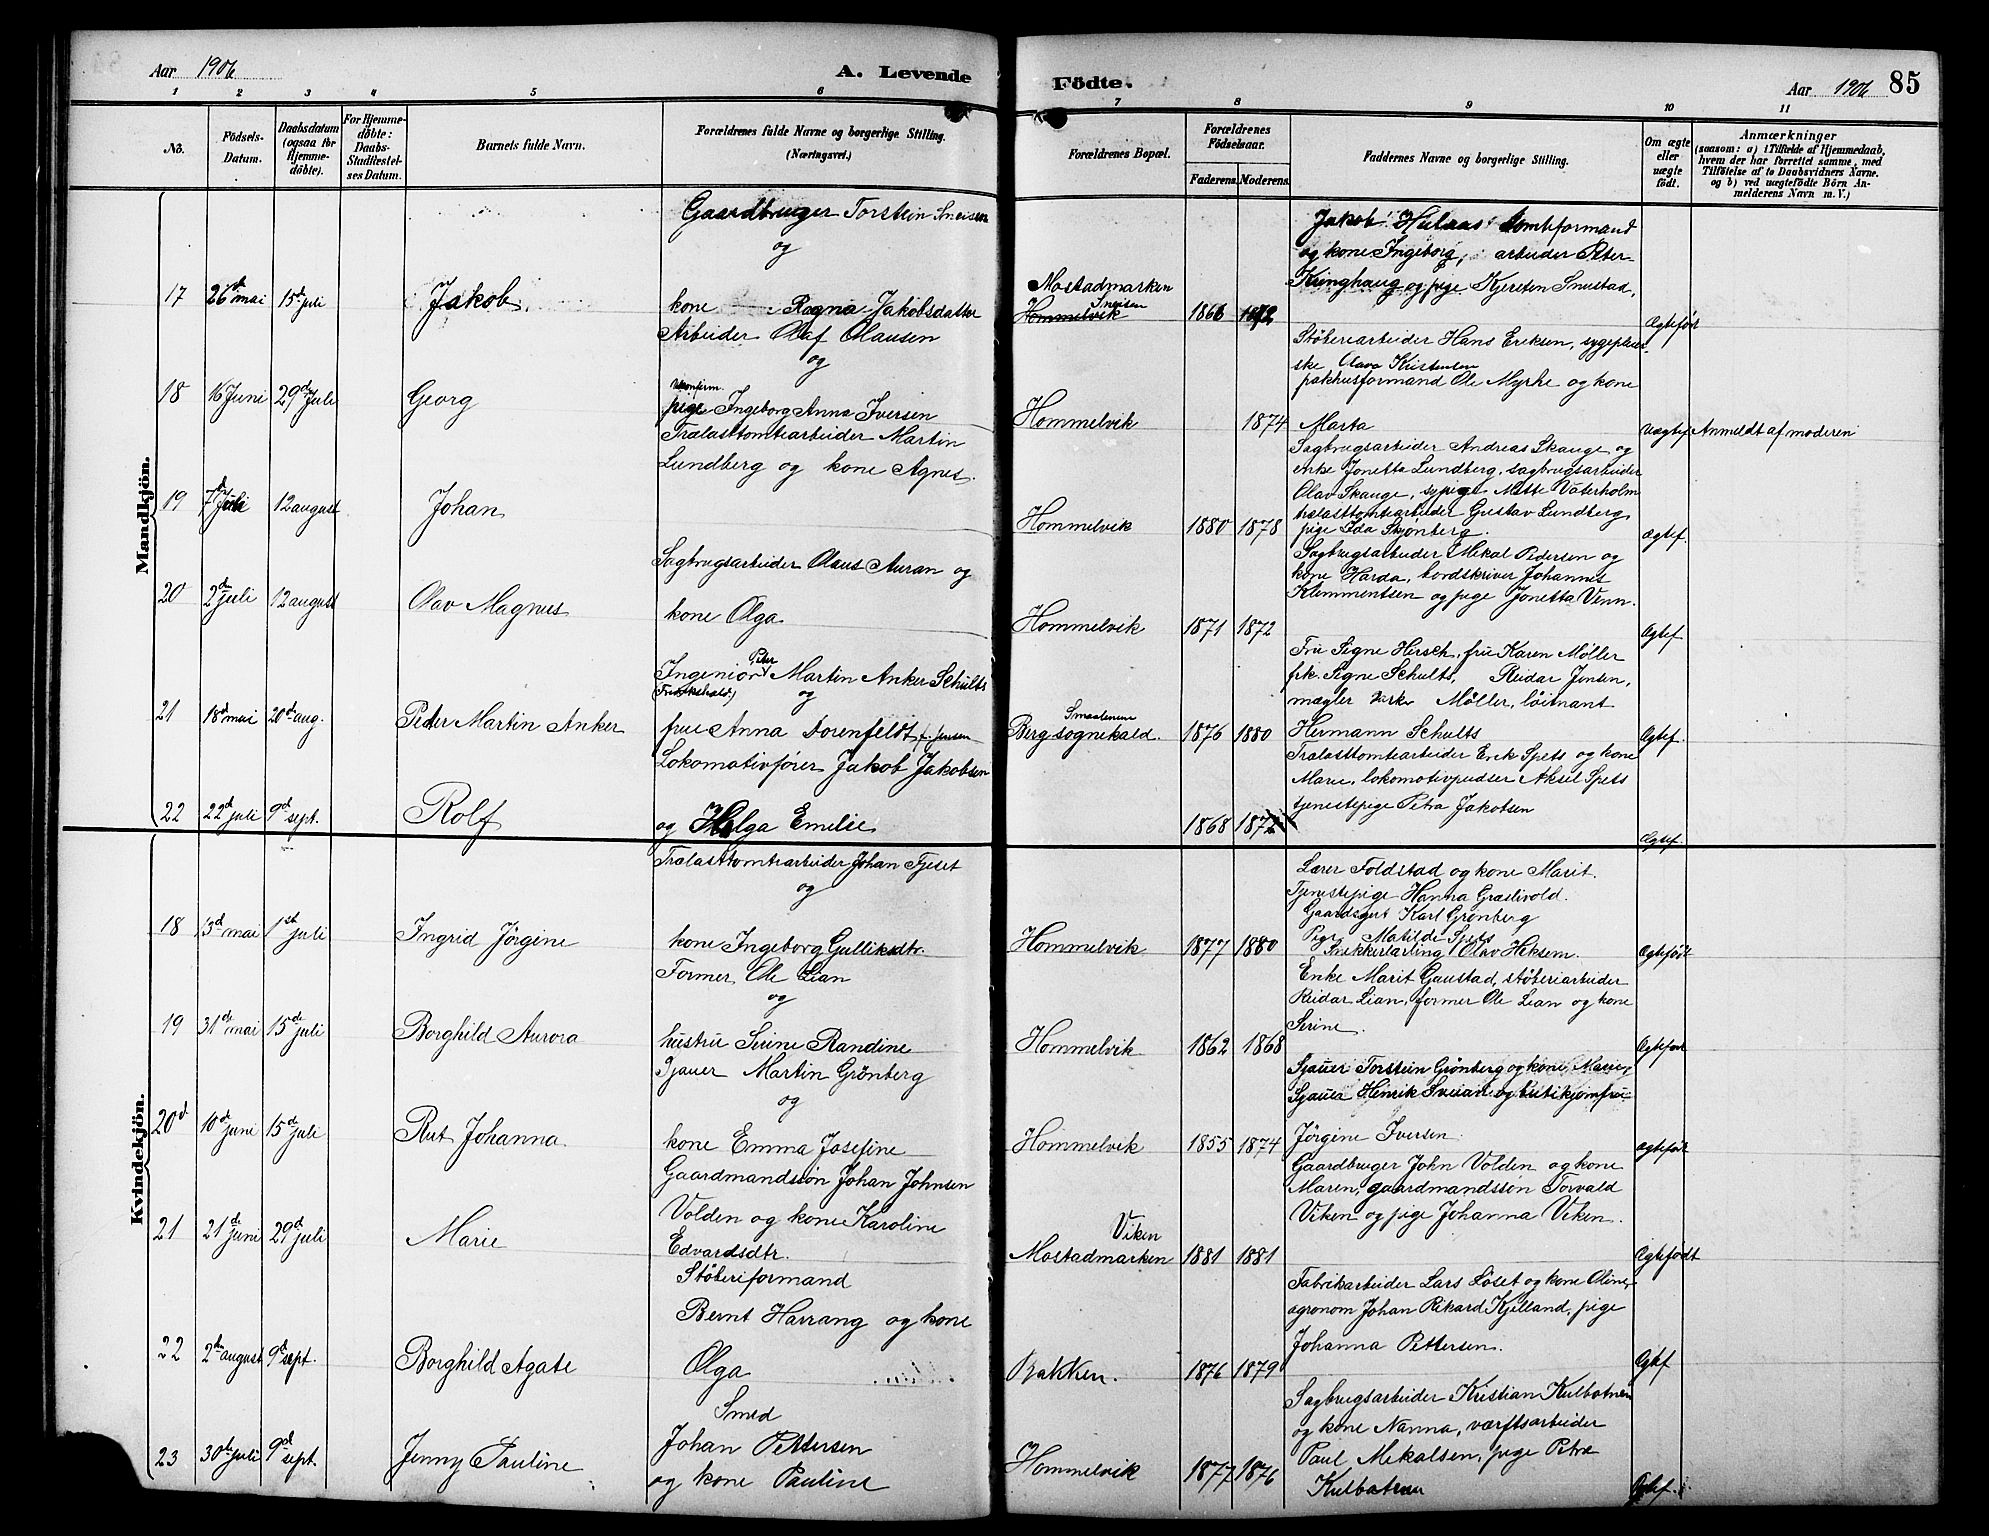 Aar 1906
A. Levende
Födte.
Aar 1906 85
1 2 3 4 5 6 7 8 9 10 11
No.
Födsels-
Datum.
Daabsdatum
(ogsaa for
Hjemme-
döbte).
For Hjemme-
döbte:
Daabs-
Stadfæstel-
ses Datum.
Barnets fulde Navn.
Forældrenes fulde Navne og borgerlige Stilling.
(Næringsvei.)
Forældrenes Bopæl.
Forældrenes
Födselsaar.
Faderens. Moderens.
Faddernes Navne og borgerlige Stilling.
Om ægte
eller
uægte
födt.
Anmærkninger
(saasom: a) i Tilfælde af Hjemmedaab,
hvem der har forrettet samme, med
Tilföielse af to Daabsvidners Navne.
og b) ved uægtefödte Börn An-
melderens Navn m. V.)
Mandkjön.
Gaardbruger Torstein Sneisen
og
17 26d mai 15d juli Jakob.
kone Ragna Jakobsdatter
Mostadmarken
Sneisen
Hommelvik 1866 1872
Jakob Hulaas tomteformand
og kone Ingeborg, arbeider Peter
Kringhaug og pige Kjersten Smistad,
Ægtefødt
Arbeider Olaf Olausen
og
ukonferm.
18 16 Juni 29d Juli Georg
pige Ingeborg Anna Iversen
Hommelvik 1874
Støberiarbeider Hans Eriksen, sygepleier-
ske Olava Kristensen
pakhusformand Ole Myrhe og kone
Marta
Uægtef. Anmeldt af moderen
Trælasttomtearbeider Martin
Lundberg og kone Agnes.
19 7d Juli 12 august Johan
Hommelvik 1880 1878
Sagbrugsarbeider Andreas Skauge og
enke Jonetta Lundberg, sagbrugsarbeider
Olav Skauge, sypige Mette Vaterholm
trælasttomtearbeider Gustav Lundberg
pige Ida Skjønberg.
Ægtef.
20 2d juli 12 august Olav Magnus
Sagbrugsarbeider Olaus Auran og
kone Olga
Hommelvik 1871 1872
Sagbrugsarbeider Mekal Pedersen og
kone Harda, bordskriver Johannes
Klemmentsen og pige Jonetta Venn.
Ægtef
Peter
Ingeniør Martin Anker Schults
(Fredrikshald) og
21 18d mai 20d aug. Peder Martin Anker
frue Anna Dorenfeldt f. Jensen
Smaalenene
Berg sognekald. 1876 1880
Fru Signe Hirsch, fru Karen Møller
frk. Signe Schults, Reidar Jensen,
mægler Møller, løitnant
Hermann Schults
Ægtef.
22 22d juli 9d sept. Rolf
Lokomotivfører Jakob Jakobsen
og Helga Emelie
1868 1872
Trælasttomtearbeider Erik Spets og kone
Marie, lokomotivpudser Aksel Spets
tjenestepige Petra Jakobsen
Ægtef.
Kvindekjön.
Trælasttomtearbeider Johan Fjeset
og
18 13d mai 1st juli Ingrid Jörgine
kone Ingeborg Gulliksdtr.
Hommelvik 1877 1880
Lærer Foldstad og kone Marit.
Tjenestepige Hanna Græslivold.
Gaardsgut Karl Grønberg
Pige Matilde Spets
Snekkerlærling Olav Heksem.
Ægtefødt
Former Ole Lian
og
19 31de mai 15de juli Borghild Aurora
hustru Serine Randine
Hommelvik 1862 1868
Enke Marit Gaustad, støberiarbeider
Reidar Lian, former Ole Lian og kone
Serine.
Ægtefødt
Sjauer Martin Grønberg
og
20d 10d juni 15de juli Rut Johanna
kone Emma Josefine
Hommelvik 1855 1874
Sjauer Torstein Grønberg og kone Marie,
Sjauer Henrik Sveian og butikjomfru
Jörgine Iversen.
ægtefødt
21 21de juni 29d juli Marie
Gaardmandssøn Johan Johnsen
Volden og kone Karoline
Edvardsdtr.
Viken
Mostadmarken 1881 1881
Gaardbruger John Volden og kone
Maren, gaardmandssøn Torvald
Viken og pige Johanna Viken.
Ægtefødt
22 2den august 9d sept. Borghild Agate
Støberiformand
Bernt Harrang og kone
Olga
Bakken. 1876 1879
Fabrikarbeider Lars Løset og kone Oline,
agronom Johan Rikard Kjelland, pige
Johanna Pettersen.
Ægtef
23 30de juli 9d sept. Jenny Pauline
Smed
Johan Pettersen
og kone Pauline
Hommelvik 1877 1876
Sagbrugsarbeider Kristian Kulbotnen
og kone Nanna, værftsarbeider
Paul Mekalsen, pige Petra
Kulbotnen
Ægtef.